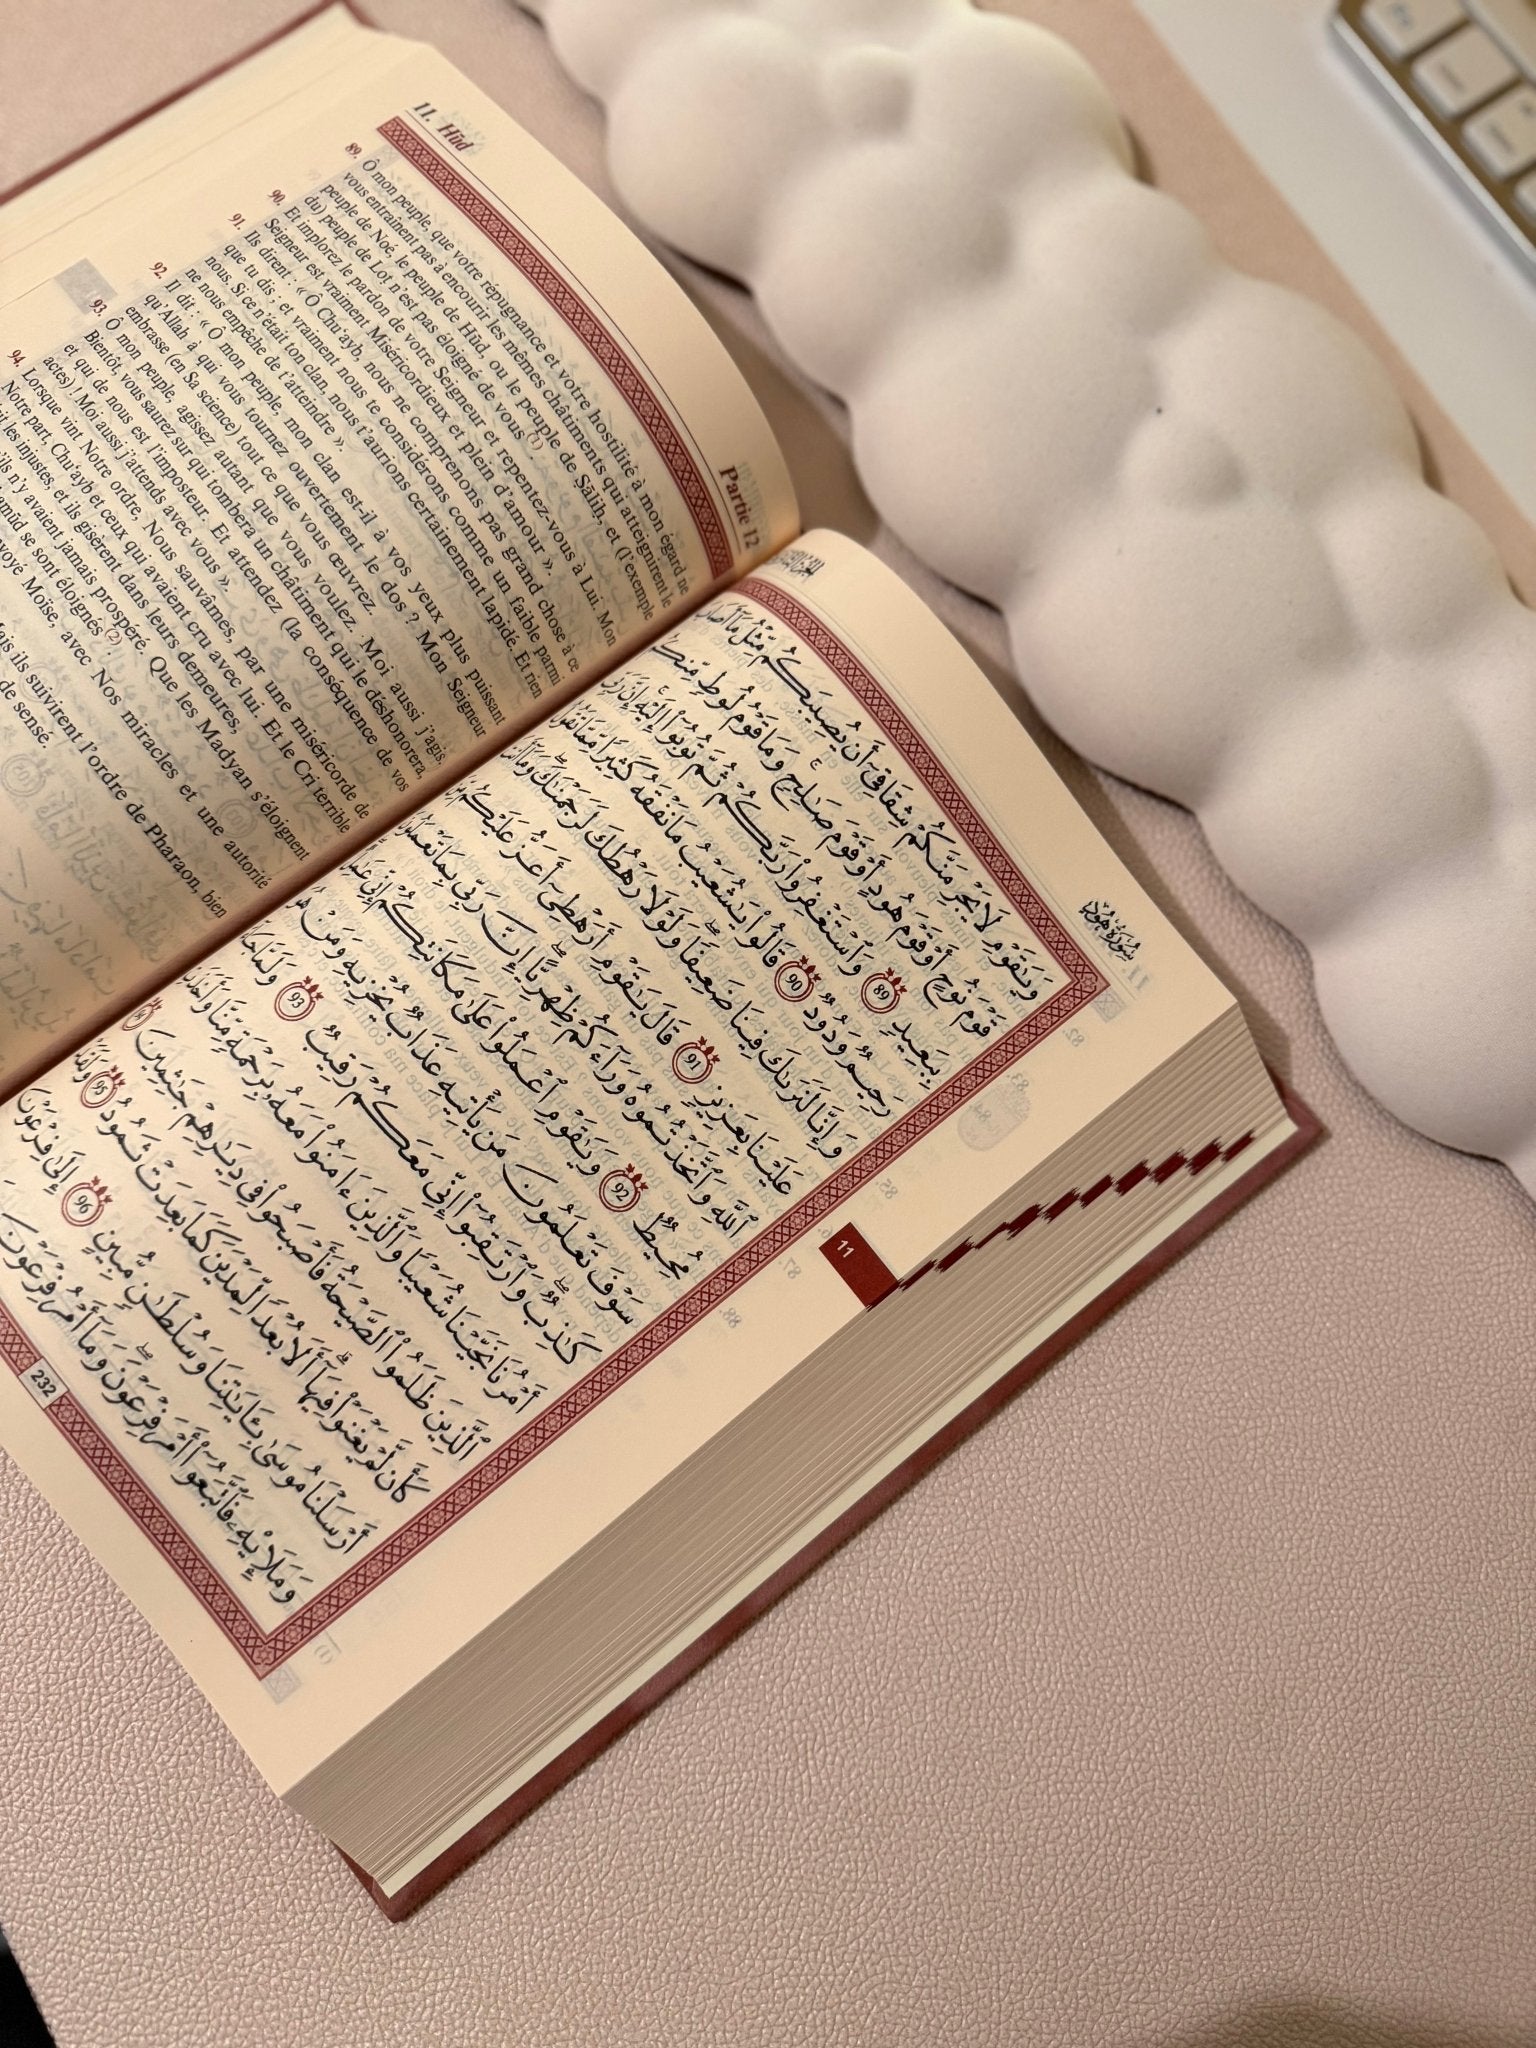 11. Hūd
Partie 12
89. Ô mon peuple, que votre répugnance et votre hostilité à mon égard ne
vous entraînent pas à encourir les mêmes châtiments qui atteignirent le
peuple de Noé, le peuple de Hūd, ou le peuple de Ṣāliḥ, et (l'exemple
du) peuple de Lot n'est pas éloigné de vous (1)
90. Et implorez le pardon de votre Seigneur et repentez-vous à Lui. Mon
Seigneur est vraiment Miséricordieux et plein d'amour ».
91. Ils dirent : « Ô Chu'ayb, nous ne comprenons pas grand chose à ce
que tu dis ; et vraiment nous te considérons comme un faible parmi
nous. Si ce n'était ton clan, nous t'aurions certainement lapidé. Et rien
ne nous empêche de t'atteindre ».
92. Il dit : « Ô mon peuple, mon clan est-il à vos yeux plus puissant
qu'Allah à qui vous tournez ouvertement le dos ? Mon Seigneur
embrasse (en Sa science) tout ce que vous œuvrez.
93. Ô mon peuple, agissez autant que vous voulez. Moi aussi j'agis.
Bientôt, vous saurez sur qui tombera un châtiment qui le déshonorera,
et qui de nous est l'imposteur. Et attendez (la conséquence de vos
actes) ! Moi aussi j'attends avec vous ».
94. Lorsque vint Notre ordre, Nous sauvâmes, par une miséricorde de
Notre part, Chu'ayb et ceux qui avaient cru avec lui. Et le Cri terrible
les injustes, et ils gisèrent dans leurs demeures,
n'y avaient jamais prospéré. Que les Madyan s'éloignent
se sont éloignés (2)
Moïse, avec Nos miracles et une autorité
ils suivirent l'ordre de Pharaon, bien
de sensé.
سُورَةُ هُودٍ
وَيَٰقَوْمِ لَا يَجْرِمَنَّكُمْ شِقَاقِىٓ أَن يُصِيبَكُم مِّثْلُ مَآ أَصَابَ
قَوْمَ نُوحٍ أَوْ قَوْمَ هُودٍ أَوْ قَوْمَ صَٰلِحٍ ۚ وَمَا قَوْمُ لُوطٍ مِّنكُم
بِبَعِيدٍ 89 وَٱسْتَغْفِرُوا۟ رَبَّكُمْ ثُمَّ تُوبُوٓا۟ إِلَيْهِ ۚ إِنَّ رَبِّى
رَحِيمٌ وَدُودٌ 90 قَالُوا۟ يَٰشُعَيْبُ مَا نَفْقَهُ كَثِيرًا مِّمَّا تَقُولُ
وَإِنَّا لَنَرَىٰكَ فِينَا ضَعِيفًا ۖ وَلَوْلَا رَهْطُكَ لَرَجَمْنَٰكَ ۖ وَمَآ أَنتَ
عَلَيْنَا بِعَزِيزٍ 91 قَالَ يَٰقَوْمِ أَرَهْطِىٓ أَعَزُّ عَلَيْكُم مِّنَ
ٱللَّهِ وَٱتَّخَذْتُمُوهُ وَرَآءَكُمْ ظِهْرِيًّا ۖ إِنَّ رَبِّى بِمَا تَعْمَلُونَ
مُحِيطٌ 92 وَيَٰقَوْمِ ٱعْمَلُوا۟ عَلَىٰ مَكَانَتِكُمْ إِنِّى عَٰمِلٌ
سَوْفَ تَعْلَمُونَ مَن يَأْتِيهِ عَذَابٌ يُخْزِيهِ وَمَنْ هُوَ
كَٰذِبٌ ۖ وَٱرْتَقِبُوٓا۟ إِنِّى مَعَكُمْ رَقِيبٌ 93 وَلَمَّا جَآءَ
أَمْرُنَا نَجَّيْنَا شُعَيْبًا وَٱلَّذِينَ ءَامَنُوا۟ مَعَهُۥ بِرَحْمَةٍ مِّنَّا وَأَخَذَتِ
ٱلَّذِينَ ظَلَمُوا۟ ٱلصَّيْحَةُ فَأَصْبَحُوا۟ فِى دِيَٰرِهِمْ جَٰثِمِينَ 94
كَأَن لَّمْ يَغْنَوْا۟ فِيهَآ ۗ أَلَا بُعْدًا لِّمَدْيَنَ كَمَا بَعِدَتْ ثَمُودُ 95 وَلَقَدْ
أَرْسَلْنَا مُوسَىٰ بِـَٔايَٰتِنَا وَسُلْطَٰنٍ مُّبِينٍ 96 إِلَىٰ فِرْعَوْنَ
وَمَلَإِي۟هِۦ فَٱتَّبَعُوٓا۟ أَمْرَ فِرْعَوْنَ ۖ وَمَآ أَمْرُ فِرْعَوْنَ
232
11